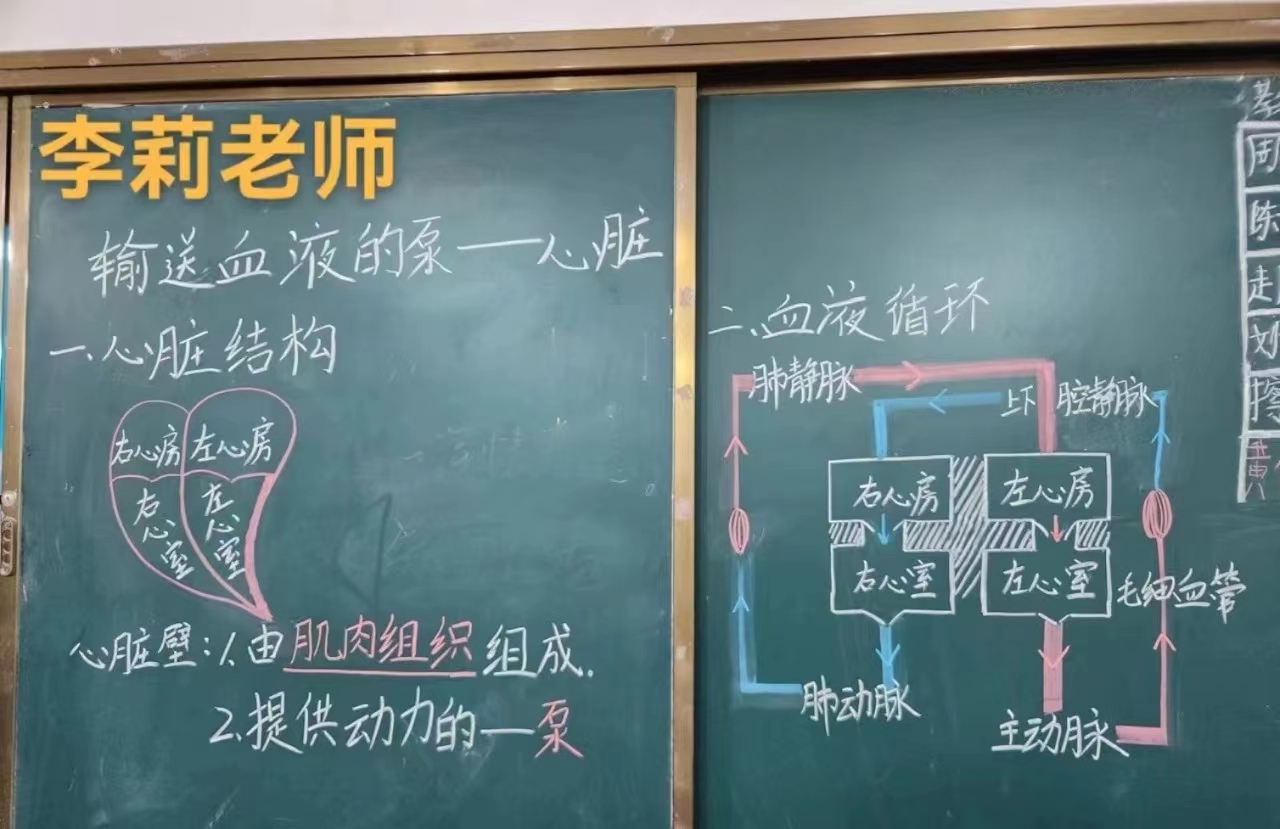 李莉老师
输送血液的泵——心脏
一、心脏结构
右心房 左心房
右心室 左心室
心脏壁:1、由肌肉组织组成.
2、提供动力的一泵
二、血液循环
肺静脉
上下腔静脉
右心房 左心房
右心室 左心室
毛细血管
肺动脉
主动脉
周
陈
赵
刘
擦